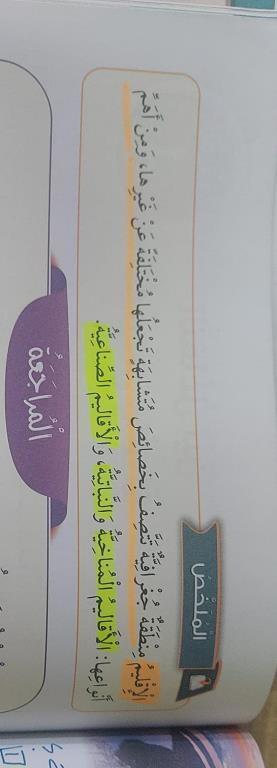 الْمُلَخَّصُ
الْإِقْلِيمُ مِنْطَقَةٌ جُغْرَافِيَّةٌ تَتَّصِفُ بِخَصَائِصَ مُتَشَابِهَةٍ تَجْعَلُهَا مُخْتَلِفَةً عَنْ غَيْرِهَا، وَمِنْ أَهَمِّ
أَنْوَاعِهَا: الْأَقَالِيمُ الْمُنَاخِيَّةُ وَالنَّبَاتِيَّةُ، وَالْأَقَالِيمُ الصِّنَاعِيَّةُ.
الْمُرَاجَعَةُ